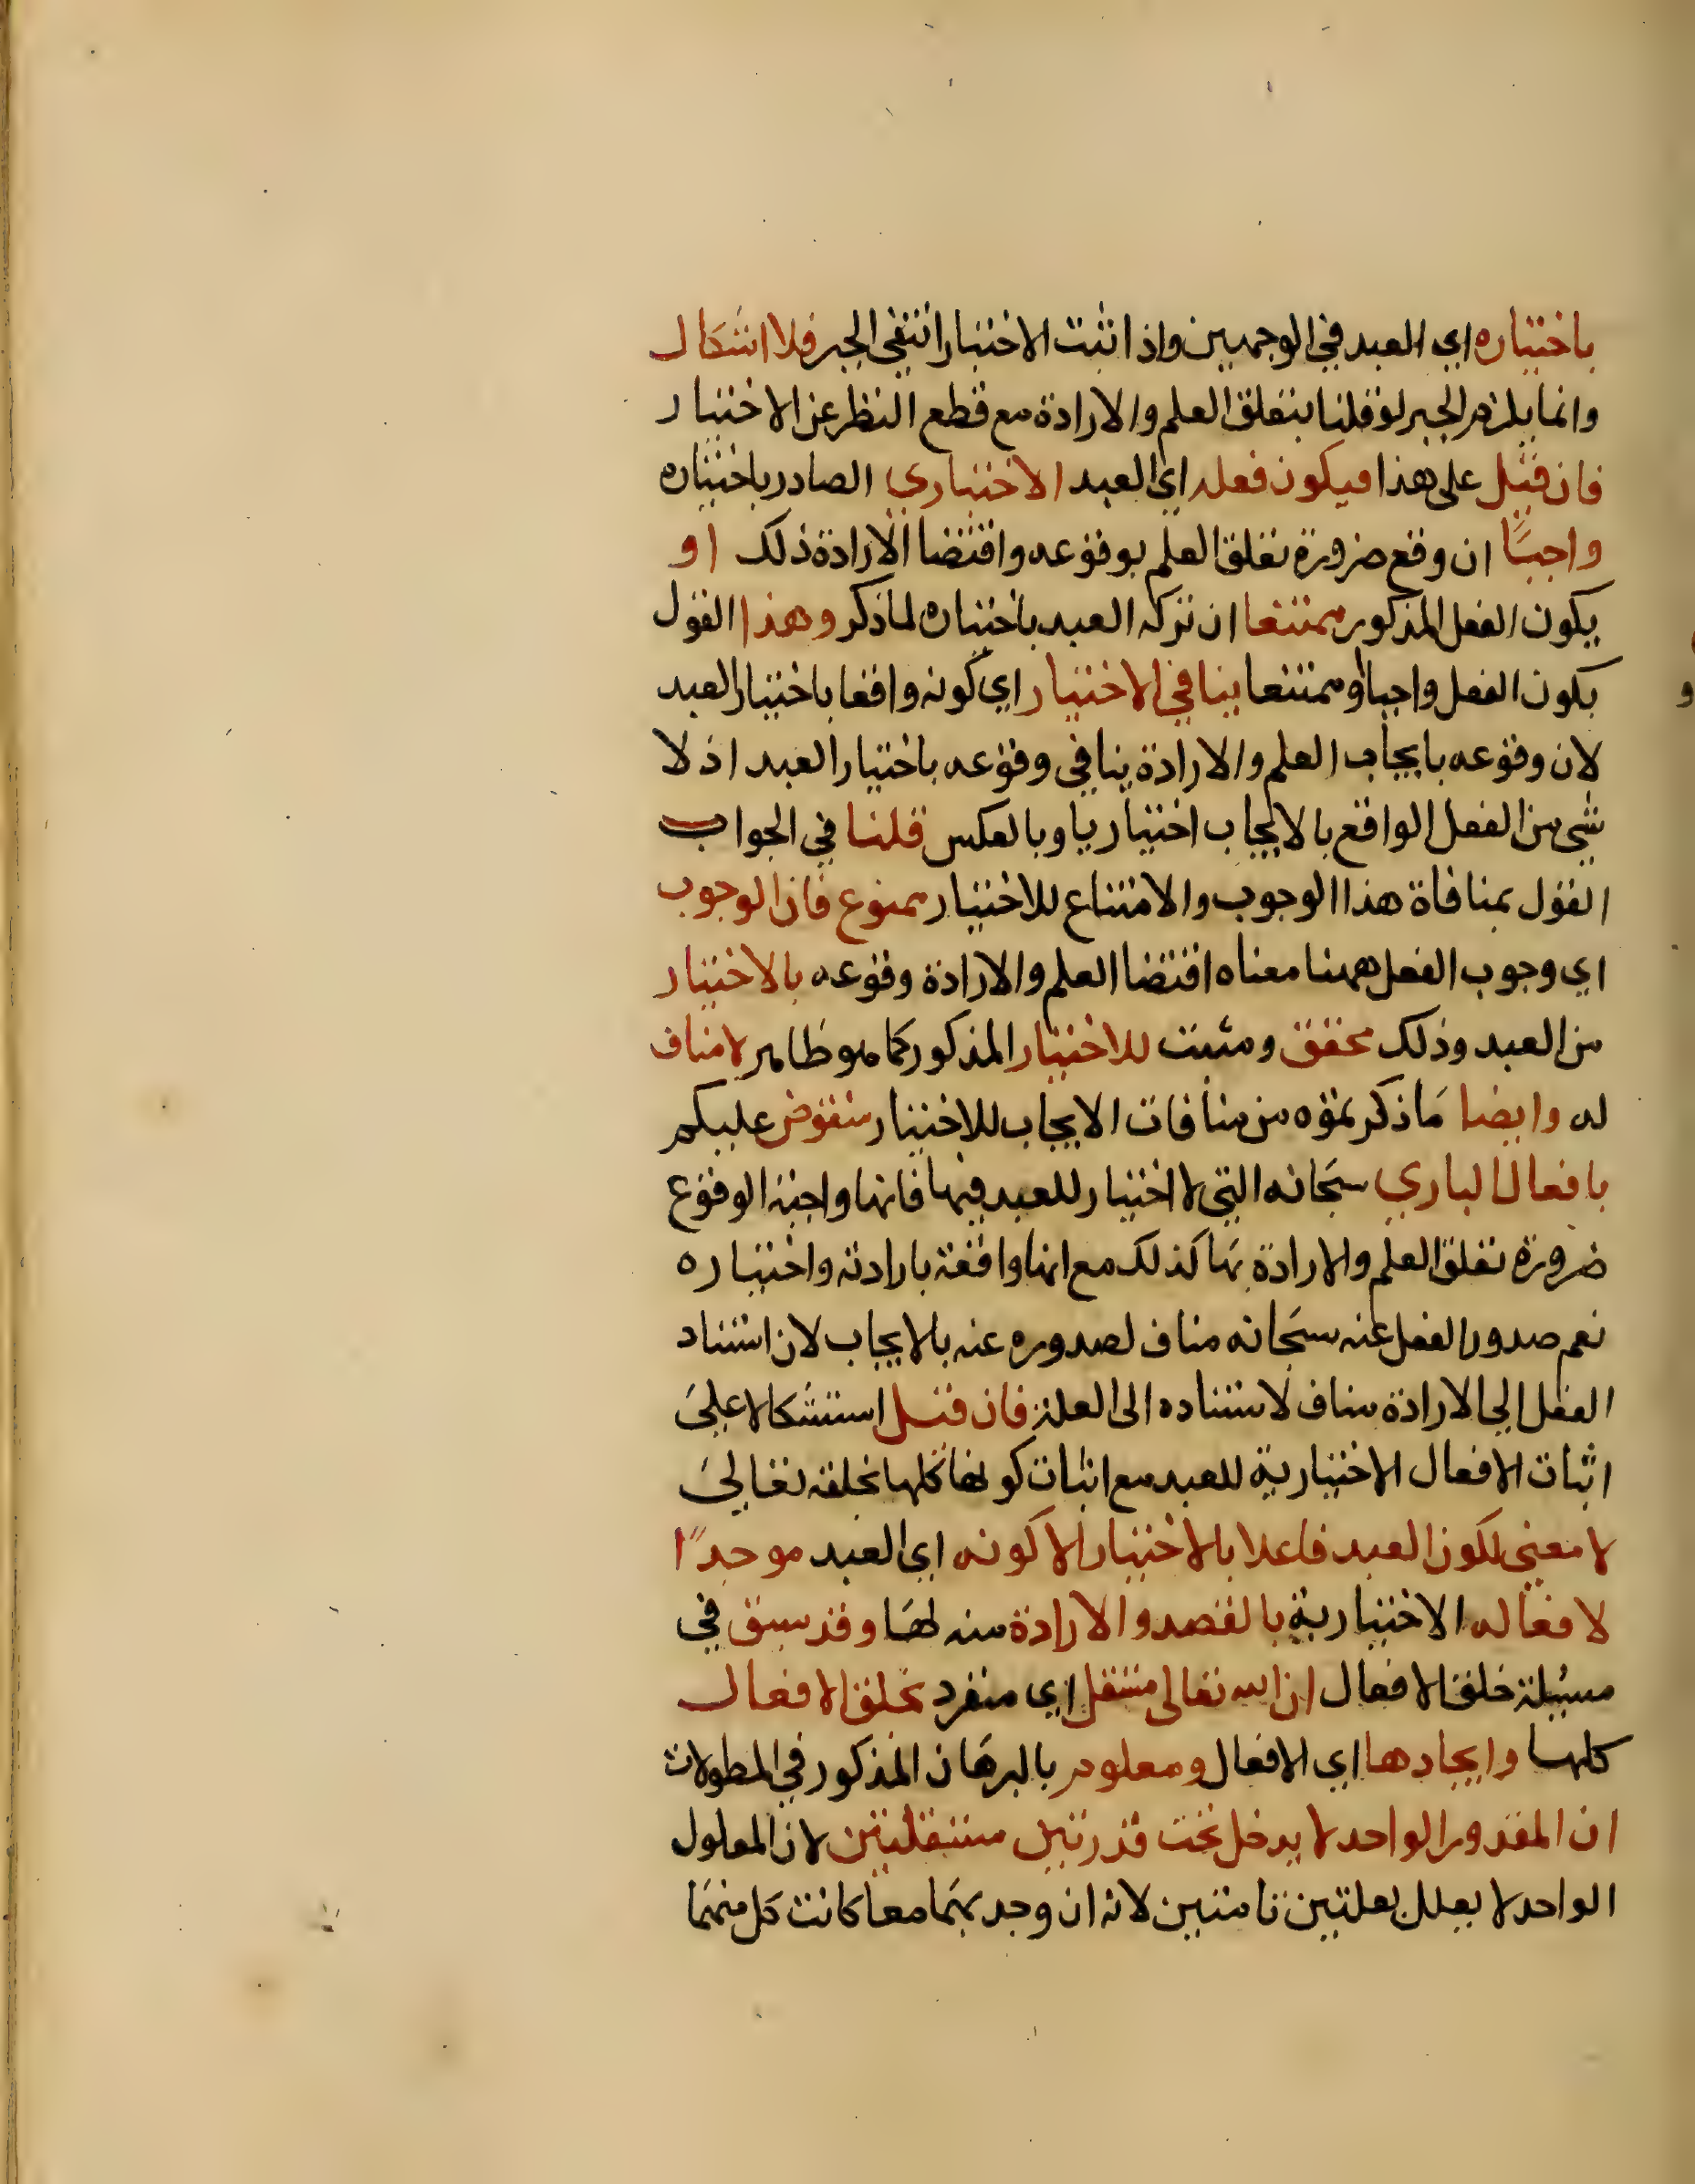 باختياره اي العبد في الوجهين واذا ثبت الاختيار انتفي الجبر فلا اشكال
وانما يلزم الجبر لو قلنا بتعلق العلم والارادة مع قطع النظر عن الاختيار
فان قيل على هذا فيكون فعله اي العبد الاختياري الصادر باختياره
واجبًا ان وقع ضرورة تعلق العلم بوقوعه واقتضا الارادة ذلك او
يكون الفعل المذكور ممتنعا ان تركه العبد باختياره لما ذكر وهذا القول
بكون الفعل واجبا او ممتنعا ينافي الاختيار اي كونه واقعا باختيار العبد
لان وقوعه بايجاب العلم والارادة ينافي وقوعه باختيار العبد اذ لا
شي من الفعل الواقع بالايجاب اختياريا وبالعكس قلنا في الجواب
القول بمنافاة هذا الوجوب والامتناع للاختيار ممنوع فان الوجوب
اي وجوب الفعل ههنا معناه اقتضا العلم والارادة وقوعه بالاختيار
من العبد وذلك محقق ومثبت للاختيار المذكور كما هو ظاهر لا مناف
له وايضا ما ذكرتموه من منافات الايجاب للاختيار منقوض عليكم
بافعال الباري سبحانه التي لا اختيار للعبد فيها فانها واجبة الوقوع
ضرورة تعلق العلم والارادة بها كذلك مع انها واقعة بارادته واختياره
نعم صدور الفعل عنه سبحانه مناف لصدوره عنه بالايجاب لان استناد
الفعل الى الارادة مناف لاستناده الى العلة فان قيل استشكالا على
اثبات الافعال الاختيارية للعبد مع اثبات كونها كلها بخلقه تعالى
لا معنى لكون العبد فاعلا بالاختيار الا كونه اي العبد موجدًا
لافعاله الاختيارية بالقصد والارادة منه لها وقد سبق في
مسئلة خلق الافعال ان الله تعالى مستقل اي منفرد بخلق الافعال
كلها وايجادها اي الافعال ومعلوم بالبرهان المذكور في المطولات
ان المقدور الواحد لا يدخل تحت قدرتين مستقلتين لان المعلول
الواحد لا يعلل بعلتين تامتين لانه ان وجد بهما معا كانت كل منهما